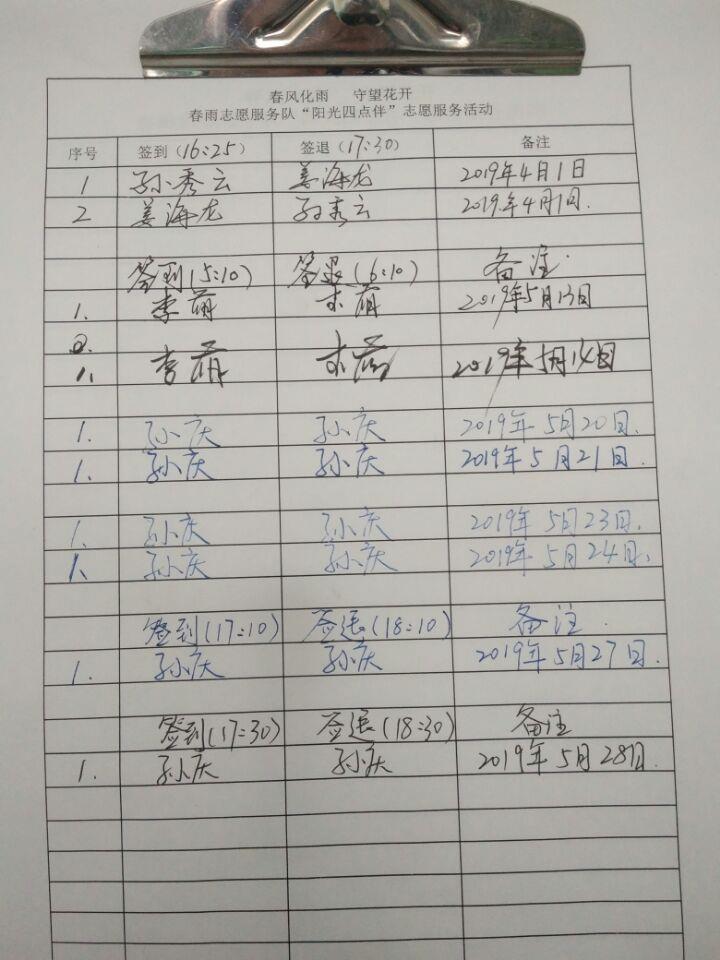 春风化雨 守望花开
春雨志愿服务队“阳光四点伴”志愿服务活动
序号 签到(16:25) 签退(17:30) 备注
1 孙秀云 姜海龙 2019年4月1日
2 姜海龙 孙秀云 2019年4月1日.
签到(5:10) 签退(6:10) 备注.
1. 李萌 李萌 2019年5月13日
2.
1. 李萌 李萌 2019年5月14日
1. 孙庆 孙庆 2019年5月20日.
1. 孙庆 孙庆 2019年5月21日.
1. 孙庆 孙庆 2019年5月23日.
1. 孙庆 孙庆 2019年5月24日.
签到(17:10) 签退(18:10) 备注.
1. 孙庆 孙庆 2019年5月27日.
签到(17:30) 签退(18:30) 备注
1. 孙庆 孙庆 2019年5月28日.